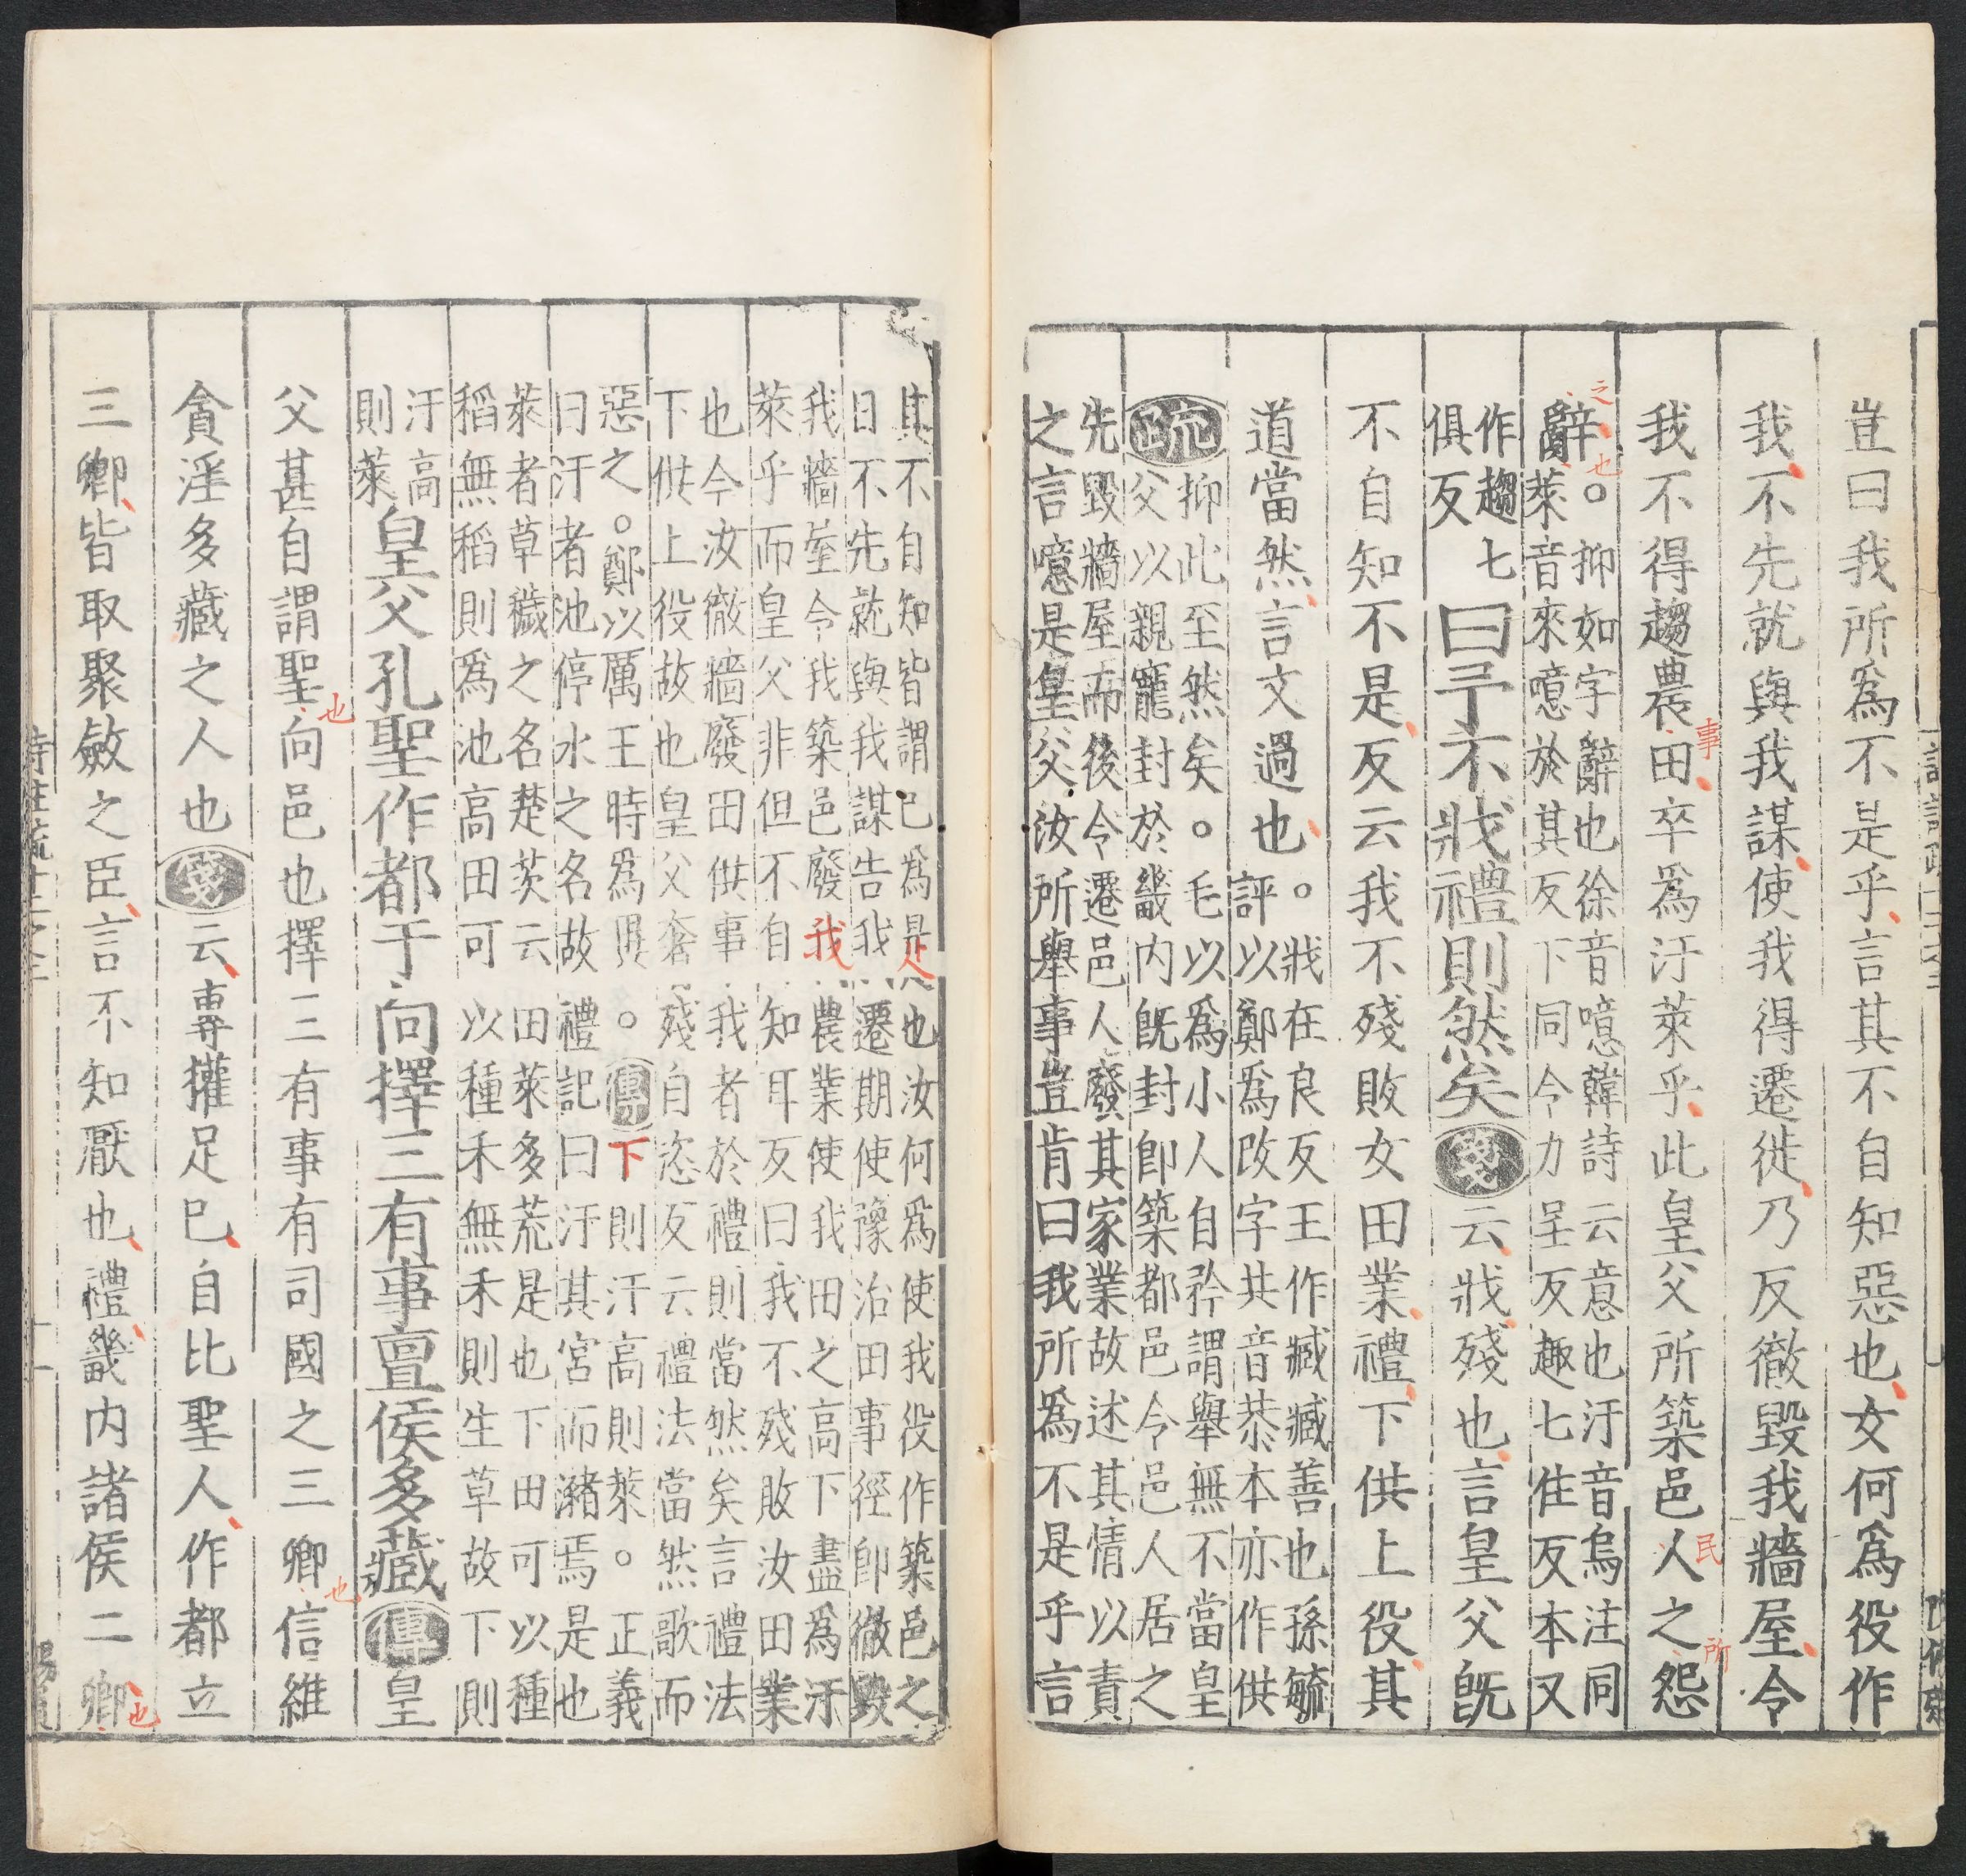 豈曰我所爲不是乎言其不自知惡也女何爲役作
我不先就與我謀使我得遷徙乃反徹毀我牆屋令
我不得趨農事田卒爲汙萊乎此皇父所築邑人民之所怨
之辭也。抑如字辭也徐音噫韓詩云意也汙音烏注同
萊音來噫於其反下同令力呈反趣七隹反本又
作趨七
俱反
曰予不戕禮則然矣箋云戕殘也言皇父既
不自知不是反云我不殘敗女田業禮下供上役其
道當然言文過也。戕在良反王作臧臧善也孫毓
評以鄭爲改字共音恭本亦作供
疏抑此至然矣。毛以爲小人自矜謂舉無不當皇
父以親寵封於畿内既封即築都邑令邑人居之
先毀牆屋而後令遷邑人廢其家業故述其情以責
之言噫是皇父汝所舉事豈肯曰我所爲不是乎言
其不自知皆謂已爲是人也汝何爲使我役作築邑之
日不先就與我謀告我遷期使豫治田事徑即徹毀
我牆屋令我築邑廢我農業使我田之高下盡爲汙
萊乎而皇父非但不自知耳反曰我不殘敗汝田業
也今汝徹牆廢田供事我者於禮則當然矣言禮法
下供上役故也皇父奢殘自恣反云禮法當然歌而
惡之。鄭以厲王時爲異。傳下則汙高則萊。正義
曰汙者池停水之名故禮記曰汙其宮而瀦焉是也
萊者草穢之名楚茨云田萊多荒是也下田可以種
稻無稻則爲池高田可以種禾無禾則生草故下則
汙高
則萊
皇父孔聖作都于向擇三有事亶侯多藏傳皇
父甚自謂聖也向邑也擇三有事有司國之三卿也信維
貪淫多藏之人也箋云專權足已自比聖人作都立
三卿皆取聚斂之臣言不知厭也禮畿内諸侯二卿也